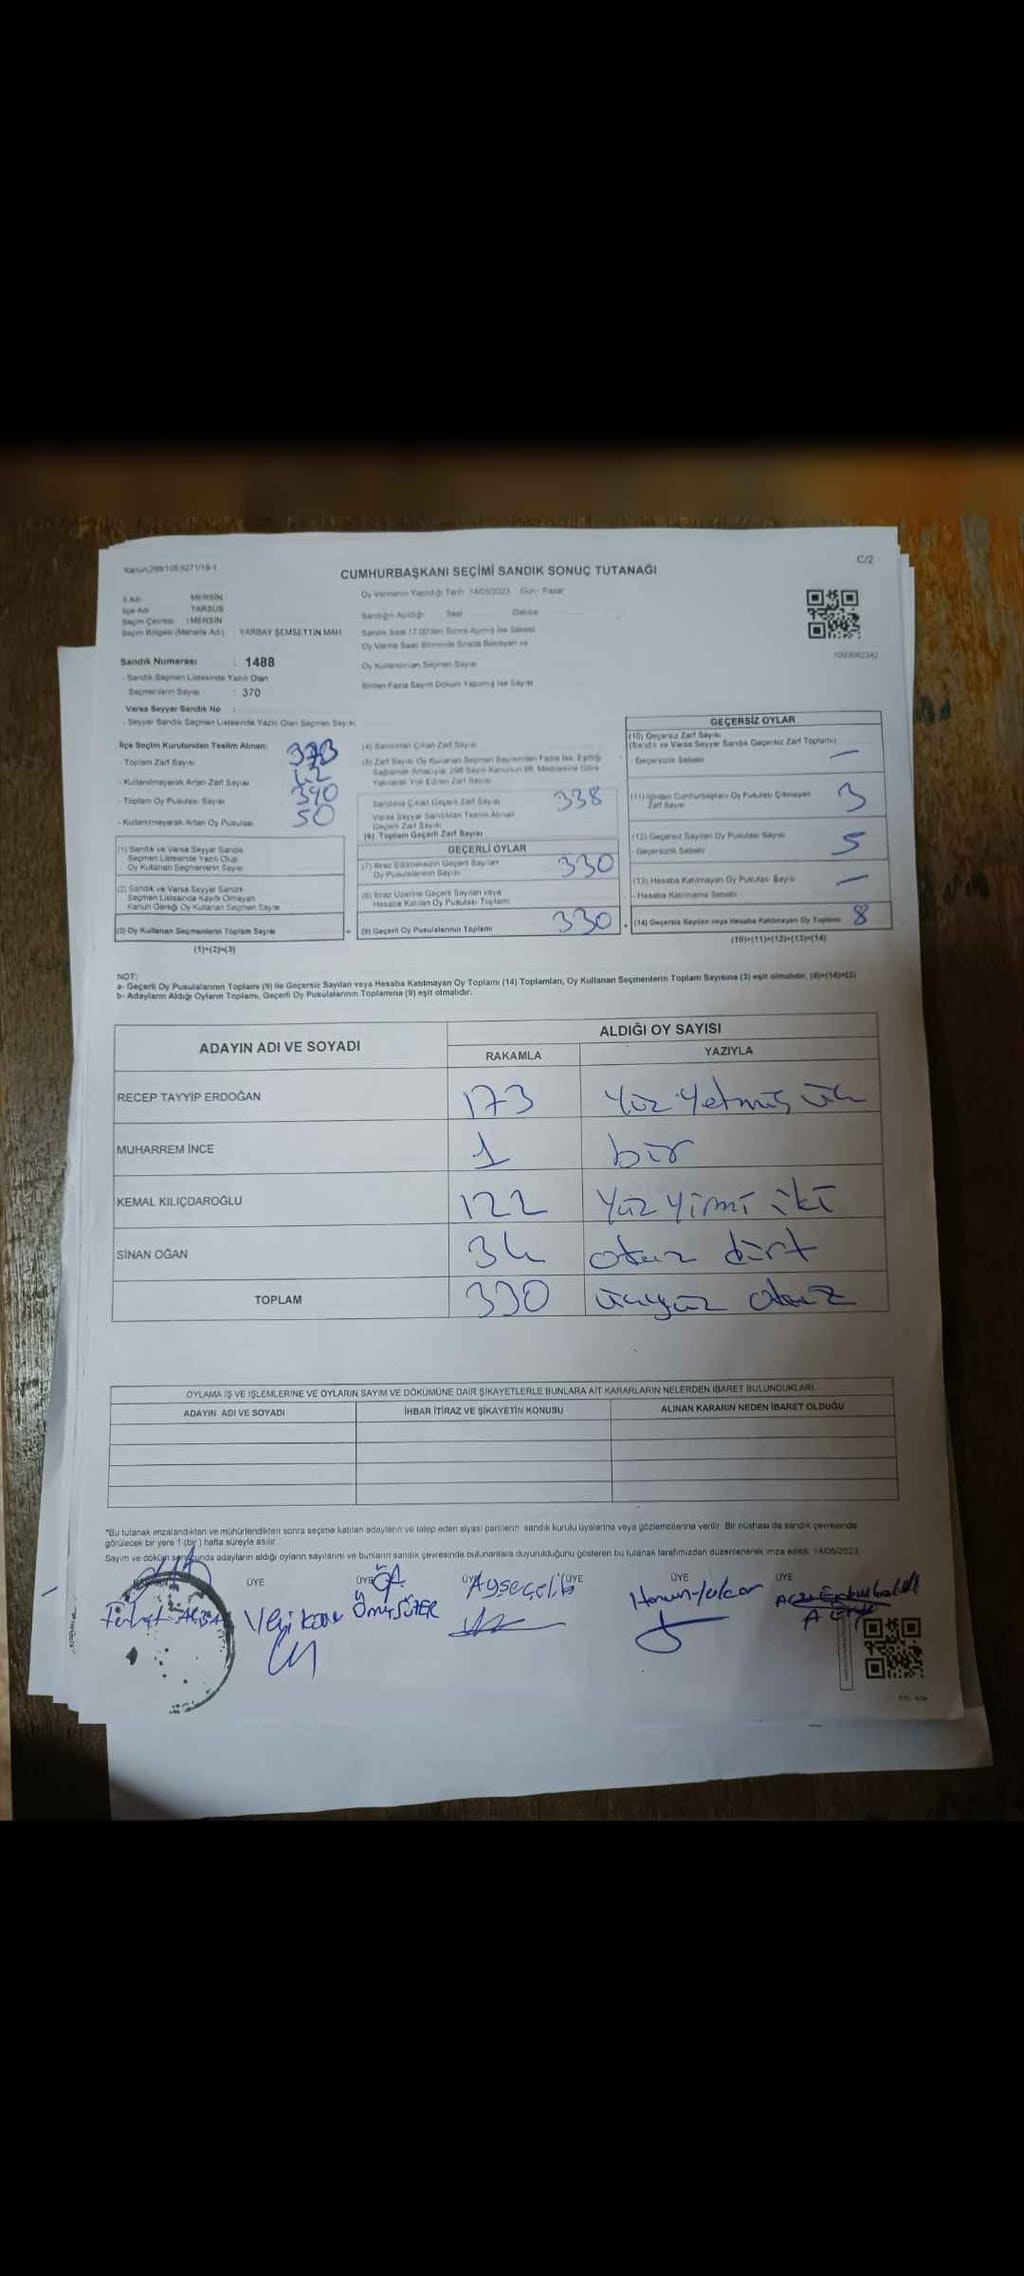 Kanun:298/105 6271/18-1
C/2
CUMHURBAŞKANI SEÇİMİ SANDIK SONUÇ TUTANAĞI
İl Adı : MERSİN
İlçe Adı : TARSUS
Seçim Çevresi : MERSİN
Seçim Bölgesi (Mahalle Adı) : YARBAY ŞEMSETTİN MAH
Sandık Numarası : 1488
- Sandık Seçmen Listesinde Yazılı Olan
Seçmenlerin Sayısı : 370
Varsa Seyyar Sandık No :
- Seyyar Sandık Seçmen Listesinde Yazılı Olan Seçmen Sayısı
Oy Vermenin Yapıldığı Tarih: 14/05/2023 Gün: Pazar
Sandığın Açıldığı Saat Dakika
Sandık Saat 17.00'den Sonra Açılmış İse Sebebi
Oy Verme Saati Bitiminde Sırada Bekleyen ve
Oy Kullandırılan Seçmen Sayısı
Birden Fazla Sayım Döküm Yapılmış İse Sayısı
İlçe Seçim Kurulundan Teslim Alınan:
- Toplam Zarf Sayısı
- Kullanılmayarak Artan Zarf Sayısı
- Toplam Oy Pusulası Sayısı
- Kullanılmayarak Artan Oy Pusulası 50
(1) Sandık ve Varsa Seyyar Sandık
Seçmen Listesinde Yazılı Olup
Oy Kullanan Seçmenlerin Sayısı
(2) Sandık ve Varsa Seyyar Sandık
Seçmen Listesinde Kayıtlı Olmayan
Kanun Gereği Oy Kullanan Seçmen Sayısı
(3) Oy Kullanan Seçmenlerin Toplam Sayısı
(1)+(2)=(3)
(4) Sandıktan Çıkan Zarf Sayısı
(5) Zarf Sayısı Oy Kullanan Seçmen Sayısından Fazla İse, Eşitliği
Sağlamak Amacıyla 298 Sayılı Kanunun 98. Maddesine Göre
Yakılarak Yok Edilen Zarf Sayısı
Sandıkta Çıkan Geçerli Zarf Sayısı 338
Varsa Seyyar Sandıktan Teslim Alınan
Geçerli Zarf Sayısı
(6) Toplam Geçerli Zarf Sayısı
GEÇERLİ OYLAR
(7) İtiraz Edilmeksizin Geçerli Sayılan
Oy Pusulalarının Sayısı 330
(8) İtiraz Üzerine Geçerli Sayılan veya
Hesaba Katılan Oy Pusulası Toplamı
(9) Geçerli Oy Pusulalarının Toplamı 330
GEÇERSİZ OYLAR
(10) Geçersiz Zarf Sayısı
(Sandık ve Varsa Seyyar Sandık Geçersiz Zarf Toplamı)
- Geçersizlik Sebebi —
(11) İçinden Cumhurbaşkanı Oy Pusulası Çıkmayan
Zarf Sayısı 3
(12) Geçersiz Sayılan Oy Pusulası Sayısı 5
- Geçersizlik Sebebi
(13) Hesaba Katılmayan Oy Pusulası Sayısı —
- Hesaba Katılmama Sebebi
(14) Geçersiz Sayılan veya Hesaba Katılmayan Oy Toplamı 8
(10)+(11)+(12)+(13)=(14)
NOT:
a- Geçerli Oy Pusulalarının Toplamı (9) ile Geçersiz Sayılan veya Hesaba Katılmayan Oy Toplamı (14) Toplamları, Oy Kullanan Seçmenlerin Toplam Sayısına (3) eşit olmalıdır. (9)+(14)=(3)
b- Adayların Aldığı Oyların Toplamı, Geçerli Oy Pusulalarının Toplamına (9) eşit olmalıdır.
ADAYIN ADI VE SOYADI
ALDIĞI OY SAYISI
RAKAMLA YAZIYLA
RECEP TAYYİP ERDOĞAN 173 Yüz yetmiş üç
MUHARREM İNCE 1 bir
KEMAL KILIÇDAROĞLU 122 Yüz yirmi iki
SİNAN OĞAN 34 otuz dört
TOPLAM 330 üçyüz otuz
OYLAMA İŞ VE İŞLEMLERİNE VE OYLARIN SAYIM VE DÖKÜMÜNE DAİR ŞİKAYETLERLE BUNLARA AİT KARARLARIN NELERDEN İBARET BULUNDUKLARI
ADAYIN ADI VE SOYADI İHBAR İTİRAZ VE ŞİKAYETİN KONUSU ALINAN KARARIN NEDEN İBARET OLDUĞU
*Bu tutanak imzalandıktan ve mühürlendikten sonra seçime katılan adayların ve talep eden siyasi partilerin sandık kurulu üyelerine veya gözlemcilerine verilir. Bir nüshası da sandık çevresinde
görülecek bir yere 1 (bir) hafta süreyle asılır.
Sayım ve döküm sonucunda adayların aldığı oyların sayılarını ve bunların sandık çevresinde bulunanlara duyurulduğunu gösteren bu tutanak tarafımızdan düzenlenerek imza edildi. 14/05/2023
ÜYE ÜYE ÜYE ÜYE ÜYE ÜYE
Veli Ömür Ayşe Çelik Harun